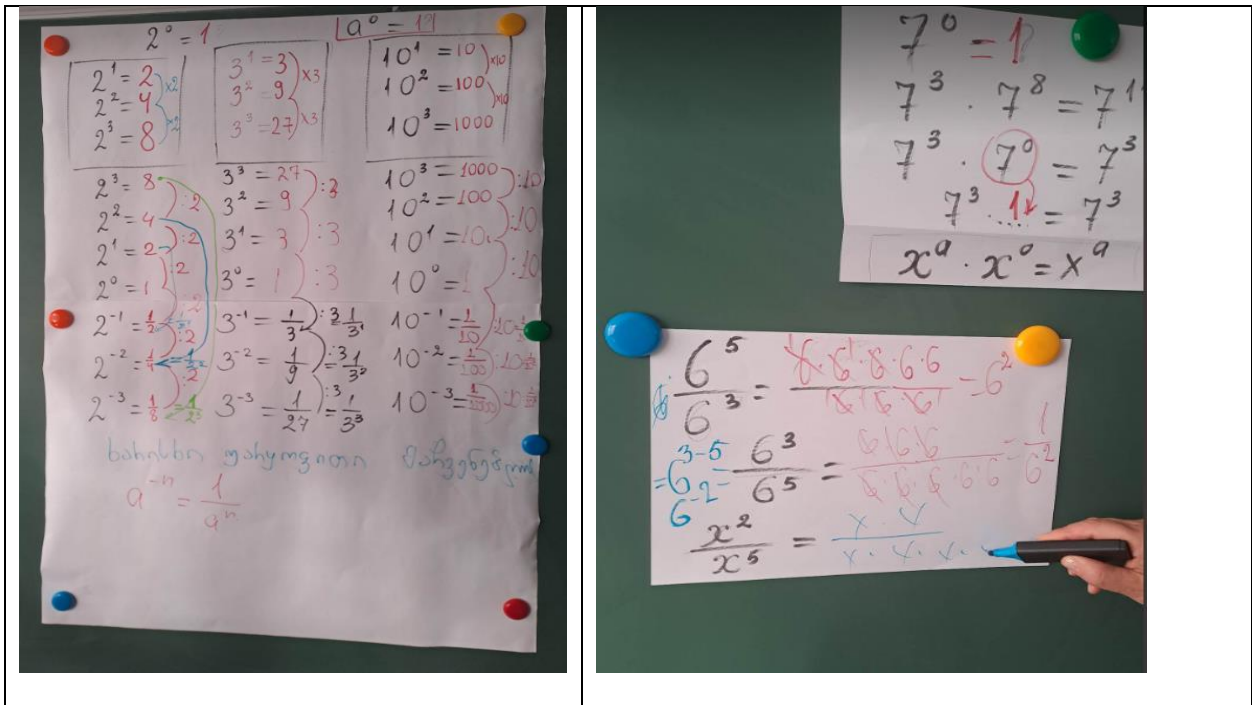 2⁰ = 1
a⁰ = 1
2¹ = 2
2² = 4
2³ = 8
×2
×2
3¹ = 3
3² = 9
3³ = 27
×3
×3
10¹ = 10
10² = 100
10³ = 1000
×10
×10
2³ = 8
2² = 4
2¹ = 2
2⁰ = 1
2⁻¹ = 1/2
2⁻² = 1/4 = 1/2²
2⁻³ = 1/8 = 1/2³
:2
:2
:2
:2
:2
:2
3³ = 27
3² = 9
3¹ = 3
3⁰ = 1
3⁻¹ = 1/3 = 1/3¹
3⁻² = 1/9 = 1/3²
3⁻³ = 1/27 = 1/3³
:3
:3
:3
:3
:3
:3
10³ = 1000
10² = 100
10¹ = 10
10⁰ = 1
10⁻¹ = 1/10
10⁻² = 1/100
10⁻³ = 1/1000
:10
:10
:10
:10
:10
:10
ხარისხი უარყოფითი მაჩვენებლით
a⁻ⁿ = 1/aⁿ
7⁰ = 1?
7³ · 7⁸ = 7¹¹
7³ · 7⁰ = 7³
7³ · 1 = 7³
xᵃ · x⁰ = xᵃ
6⁵/6³ = 6·6·6·6·6/6·6·6 = 6²
= 6³⁻⁵ = 6³/6⁵ = 6·6·6/6·6·6·6·6 = 1/6²
6⁻²
x²/x⁵ = x·x/x·x·x·